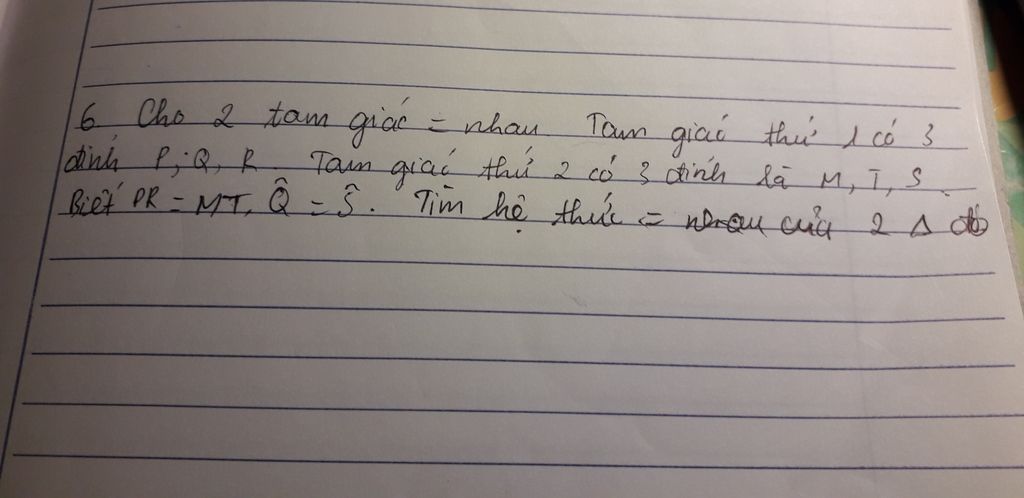 6 Cho 2 tam giác = nhau. Tam giác thứ 1 có 3
đỉnh P; Q, R. Tam giác thứ 2 có 3 đỉnh là M, T, S.
Biết PR = MT, Q̂ = Ŝ. Tìm hệ thức = nhau của 2 Δ đó